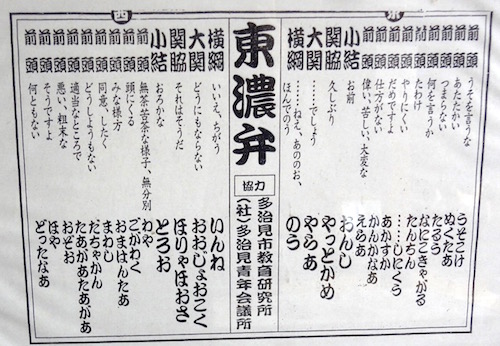 東
前頭 うそを言うな うそこけ
前頭 あたたかい ぬくたあ
前頭 つまらない たるう
前頭 何を言うか なにこきゃがる
前頭 たわけ たんちん
前頭 やりにくい ……しにくら
前頭 だめですよ あかすか
前頭 仕方がない かんかなあ
前頭 偉い、苦しい、大変な えらあ
小結 お前 おんし
関脇 久しぶり やっとかめ
大関 ……でしょう やらあ
横綱 ……ねえ、あののお、ほんでのう のう
東濃弁
協力
多治見市教育研究所
(社)多治見青年会議所
西
横綱 いいえ、ちがう いんね
大関 どうにもならない おおじょおこく
関脇 それはそうだ ほりゃほおさ
小結 おろかな とろお
前頭 無茶苦茶な様子、無分別 わや
前頭 頭にくる ごがわく
前頭 みな様方 おまはんたあ
前頭 同意、したく まわし
前頭 どうしようもない だちゃかん
前頭 適当なところで たあがあたあがあ
前頭 悪い、粗末な おぞお
前頭 そうですよ ほや
前頭 何ともない どったなあ